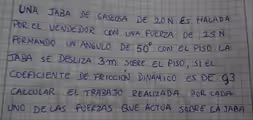 UNA JABA DE GASEOSA DE 20N. ES HALADA
POR EL VENDEDOR CON UNA FUERZA DE 25N
FORMANDO UN ANGULO DE 50° CON EL PISO LA
JABA SE DESLIZA 3m SOBRE EL PISO, SI EL
COEFICIENTE DE FRICCION DINAMICO ES DE 93
CALCULAR EL TRABAJO REALIZADA POR CADA
UNO DE LAS FUERZAS QUE ACTUA SOBRE LA JABA